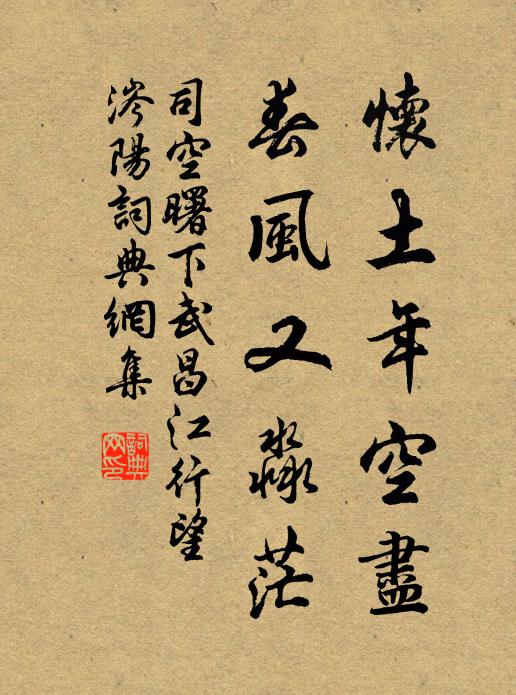 懷土年空盡
春風又淼茫
司空曙下武昌江行望
涔陽詞典網集
詞典
网印